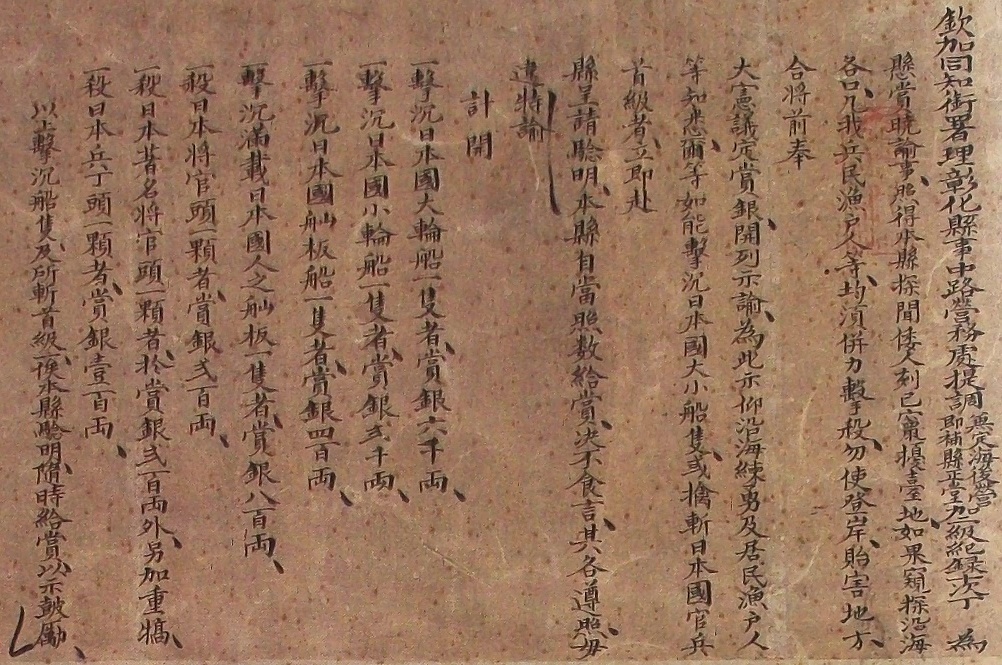 欽加同知銜署理彰化縣事中路營務處提調兼定海後營即補縣正堂加一級紀錄六次丁 為
懸賞曉諭事照得本縣探聞倭人刻已竄擾臺地如果窺探沿海
各口凡我兵民漁戶人等均須併力擊殺勿使登岸貽害地方
合將前奉
大憲議定賞銀開列示諭為此示仰沿海練勇及居民漁戶人
等知悉爾等如能擊沉日本國大小船隻或擒斬日本國官兵
首級者立即赴
縣呈請驗明本縣自當照數給賞決不食言其各遵照毋
違特諭
計開
一擊沉日本國大輪船一隻者賞銀六千両
一擊沉日本國小輪船一隻者賞銀弍千両
一擊沉日本國舢板船一隻者賞銀四百両
一擊沉滿載日本國人之舢板一隻者賞銀八百両
一殺日本將官頭一顆者賞銀弍百両
一殺日本著名將官頭一顆者於賞銀弍百両外另加重犒
一殺日本兵丁頭一顆者賞銀壹百両
以上擊沉船隻及所斬首級一俟本縣驗明隨時給賞以示鼓勵